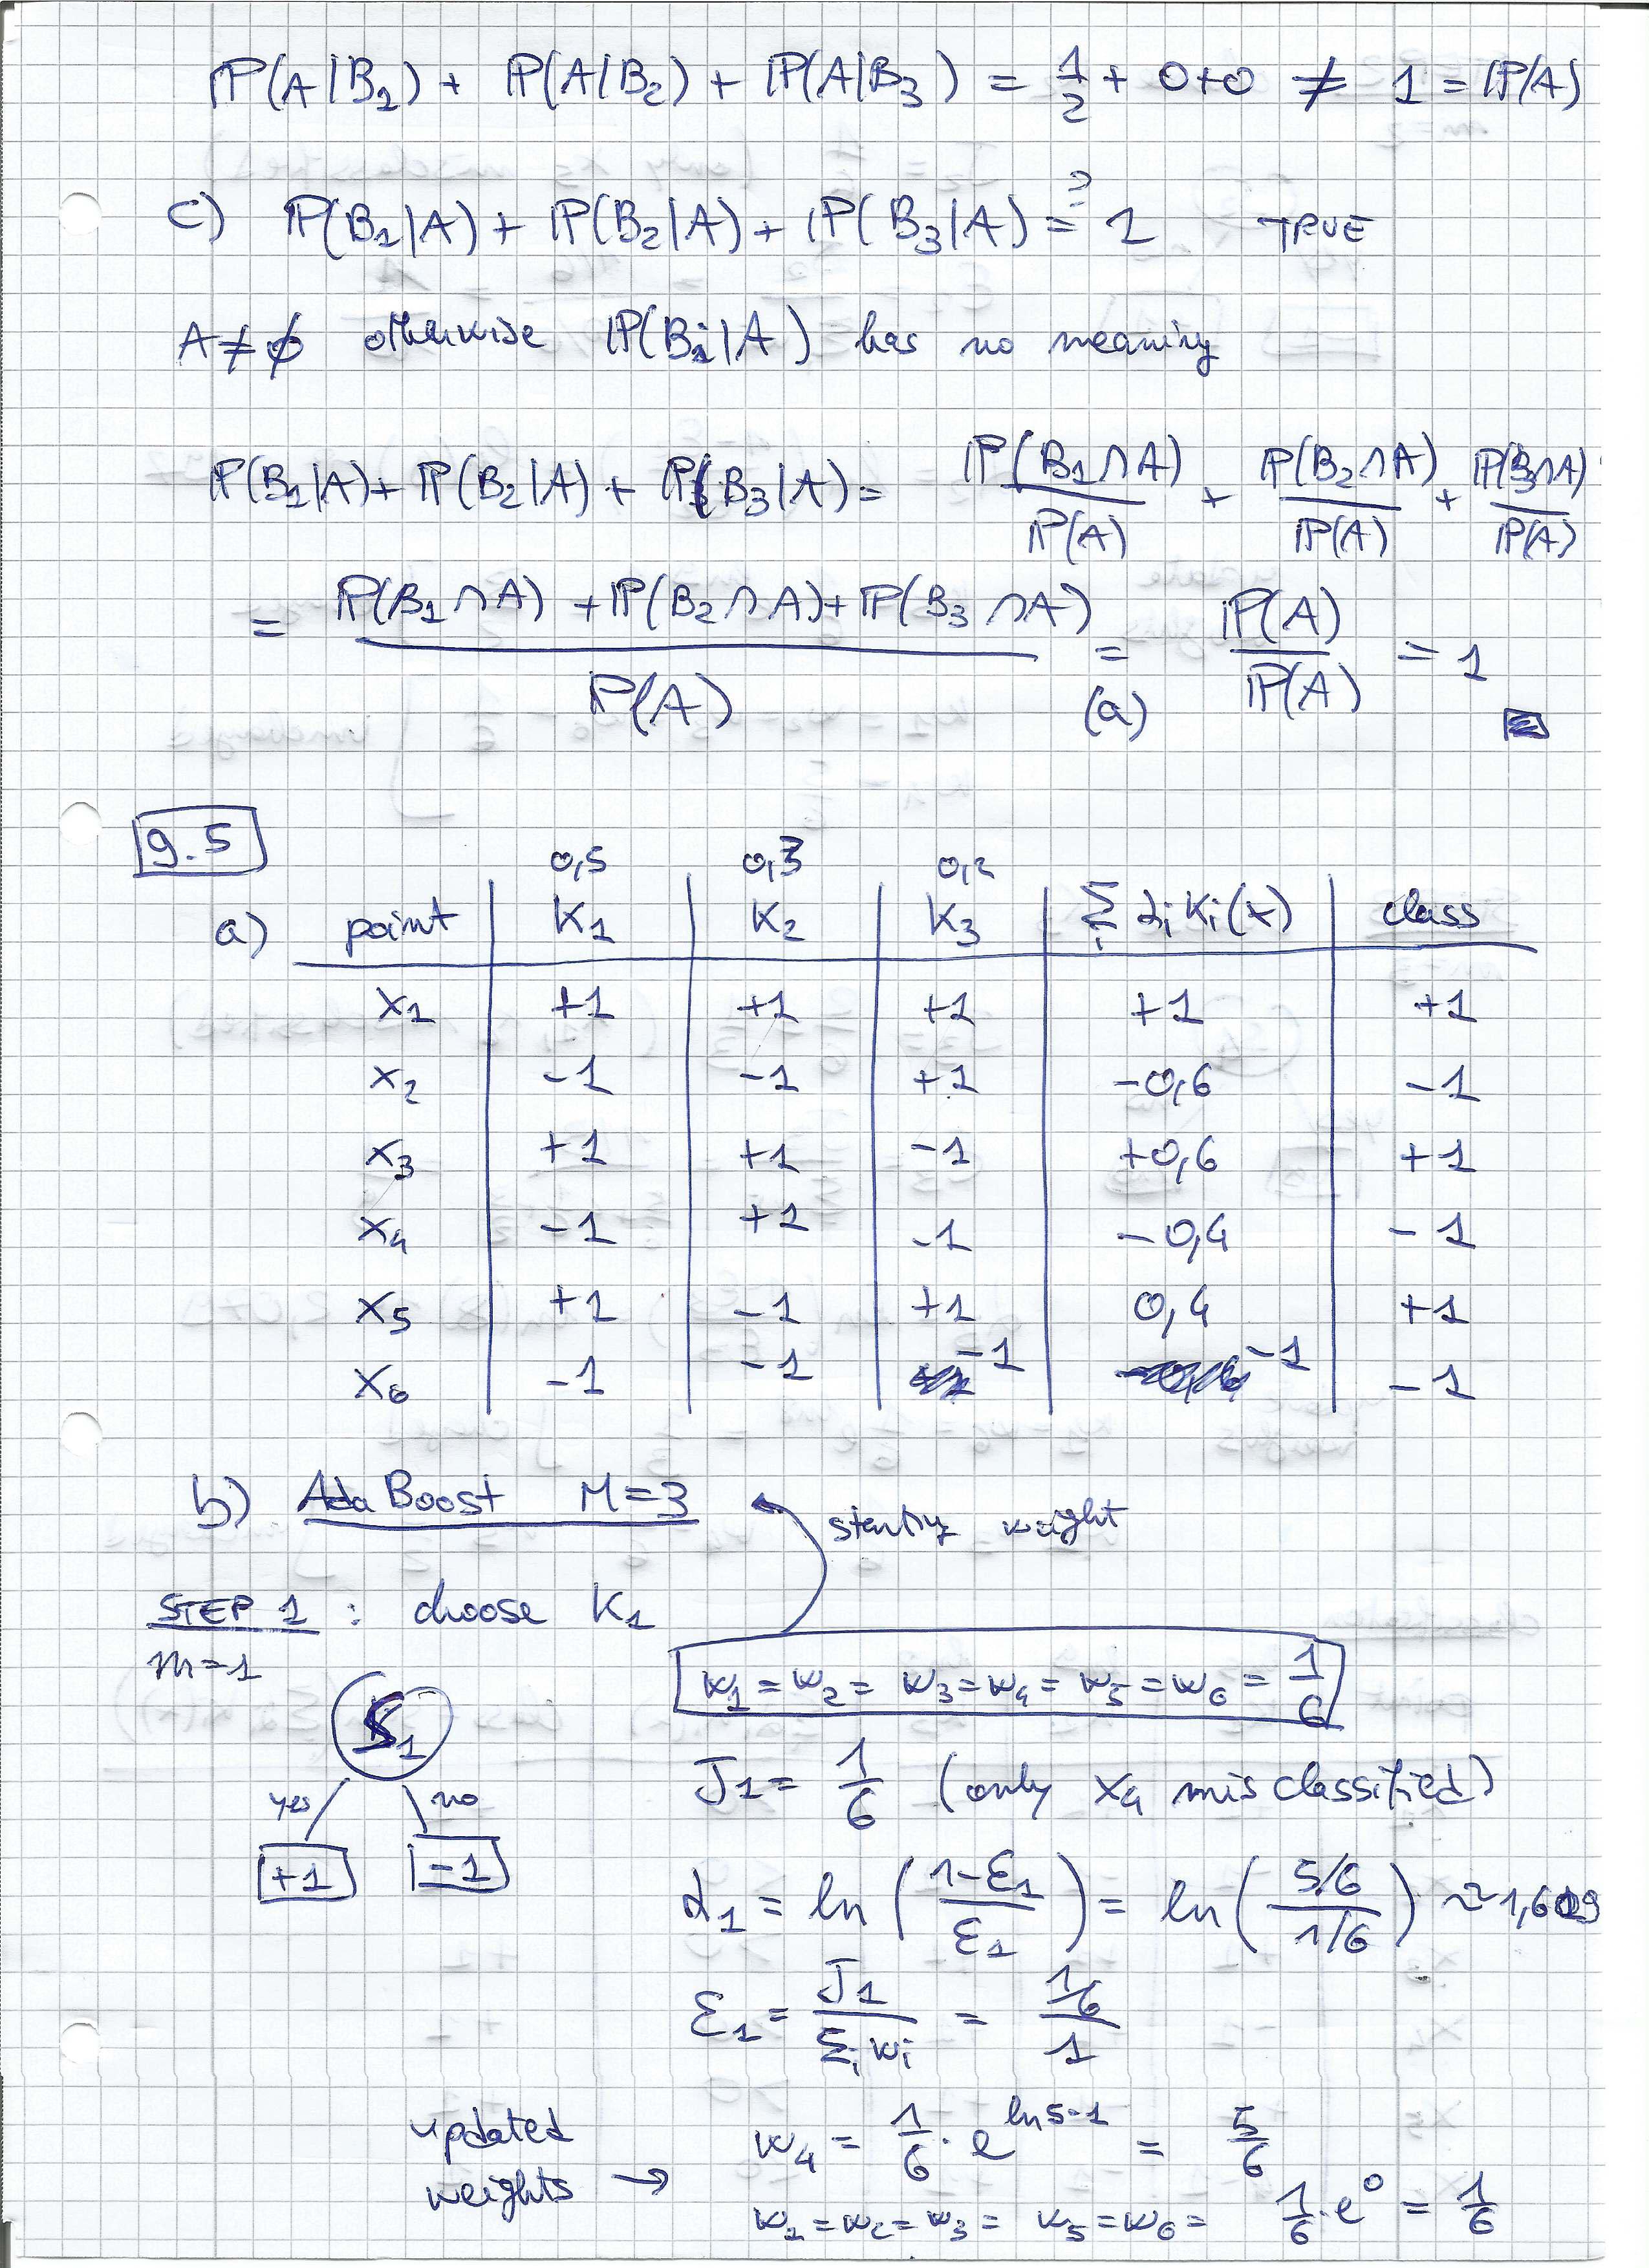 ℙ(A|B₁) + ℙ(A|B₂) + ℙ(A|B₃) = 1/2 + 0+0 ≠ 1 = ℙ(A)
c) ℙ(B₁|A) + ℙ(B₂|A) + ℙ(B₃|A) =? 1 TRUE
A≠∅ otherwise ℙ(Bᵢ|A) has no meaning
ℙ(B₁|A) + ℙ(B₂|A) + ℙ(B₃|A) = ℙ(B₁∩A)/ℙ(A) + ℙ(B₂∩A)/ℙ(A) + ℙ(B₃∩A)/ℙ(A)
= (ℙ(B₁∩A) + ℙ(B₂∩A) + ℙ(B₃∩A))/ℙ(A) =(a) ℙ(A)/ℙ(A) = 1
9.5
0,5 0,3 0,2
a) point K₁ K₂ K₃ Σᵢ αᵢ Kᵢ(x) class
x₁ +1 +1 +1 +1 +1
x₂ -1 -1 +1 -0,6 -1
x₃ +1 +1 -1 +0,6 +1
x₄ -1 +1 -1 -0,4 -1
x₅ +1 -1 +1 0,4 +1
x₆ -1 -1 -1 -1 -1
b) AdaBoost M=3
starting weight
STEP 1 : choose K₁
m=1
w₁ = w₂ = w₃ = w₄ = w₅ = w₆ = 1/6
S₁
yes no
+1 -1
J₁ = 1/6 (only x₄ misclassified)
α₁ = ln((1-ε₁)/ε₁) = ln((5/6)/(1/6)) ≈ 1,609
ε₁ = J₁/Σᵢwᵢ = (1/6)/1
updated weights → w₄ = 1/6 · e^(ln5·1) = 5/6
w₁ = w₂ = w₃ = w₅ = w₆ = 1/6 · e⁰ = 1/6